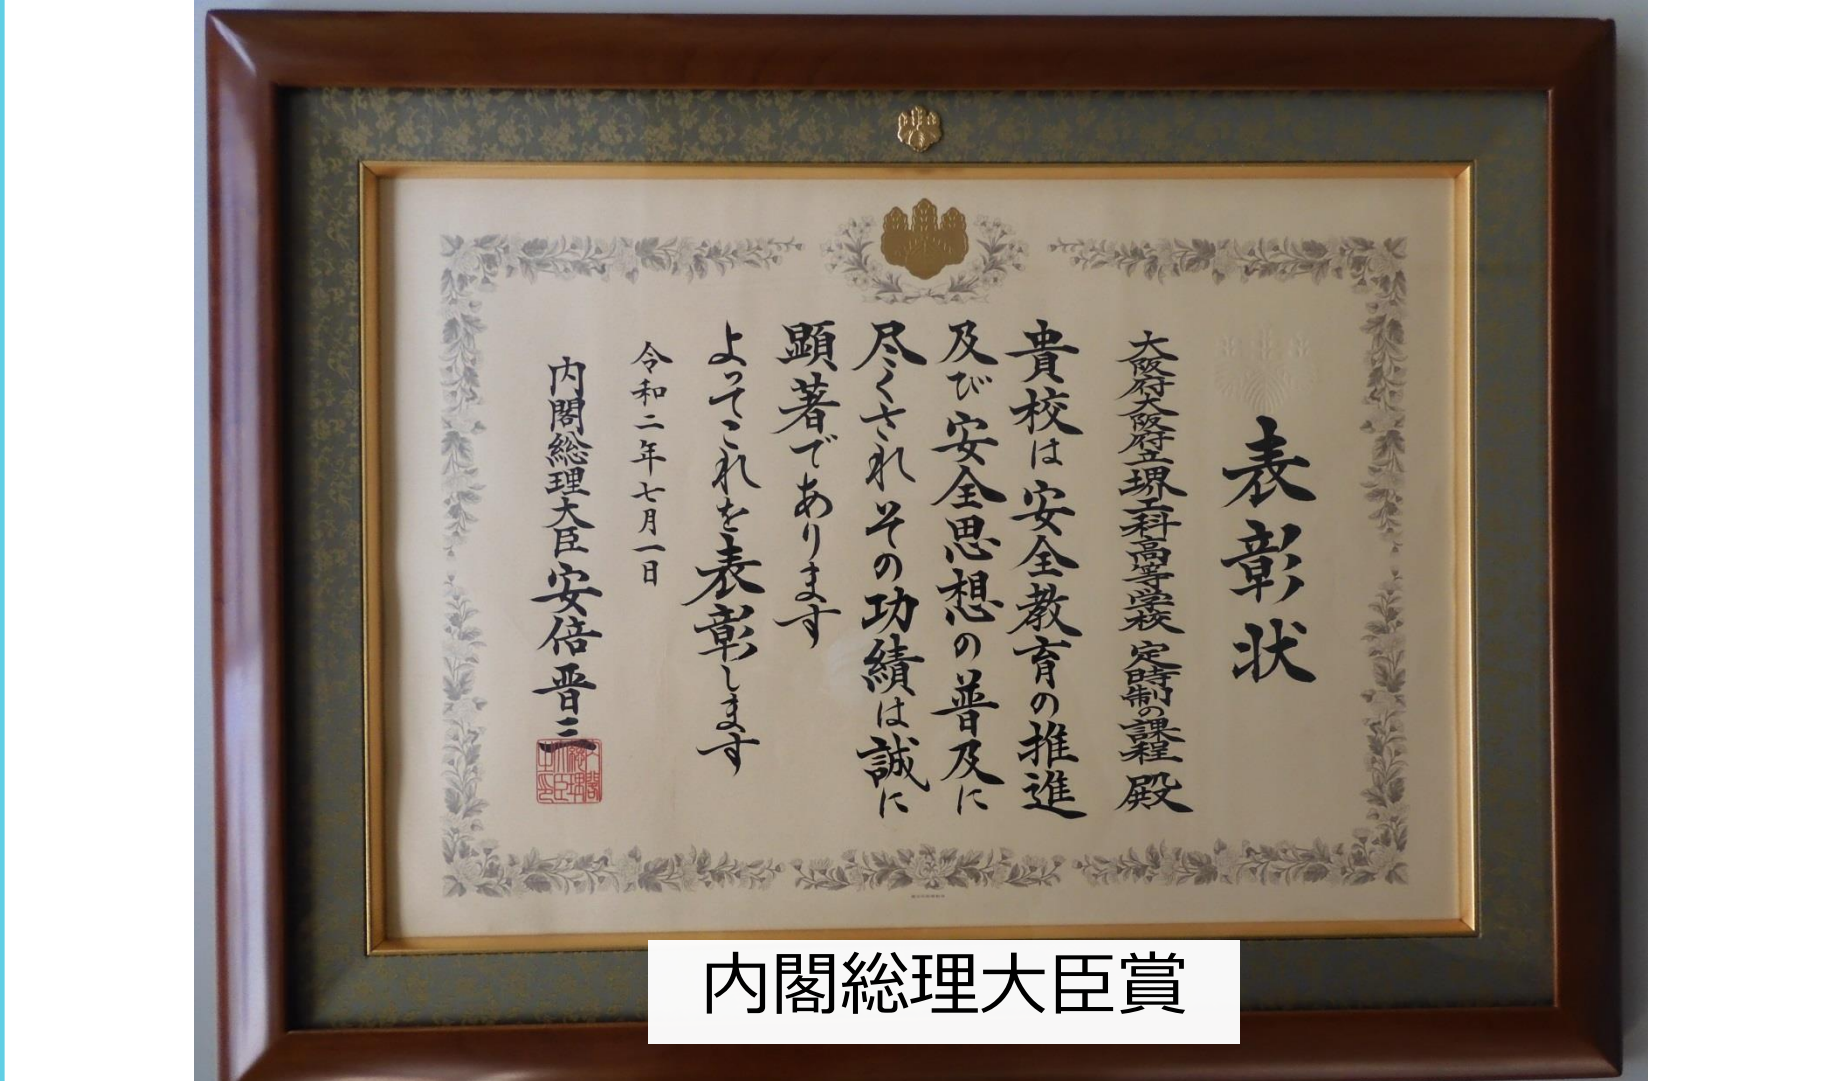 表彰状
大阪府大阪府立堺工科高等学校 定時制の課程 殿
貴校は安全教育の推進
及び安全思想の普及に
尽くされその功績は誠に
顕著であります
よってこれを表彰します
令和二年七月一日
内閣総理大臣 安倍晋三
内閣総理大臣賞